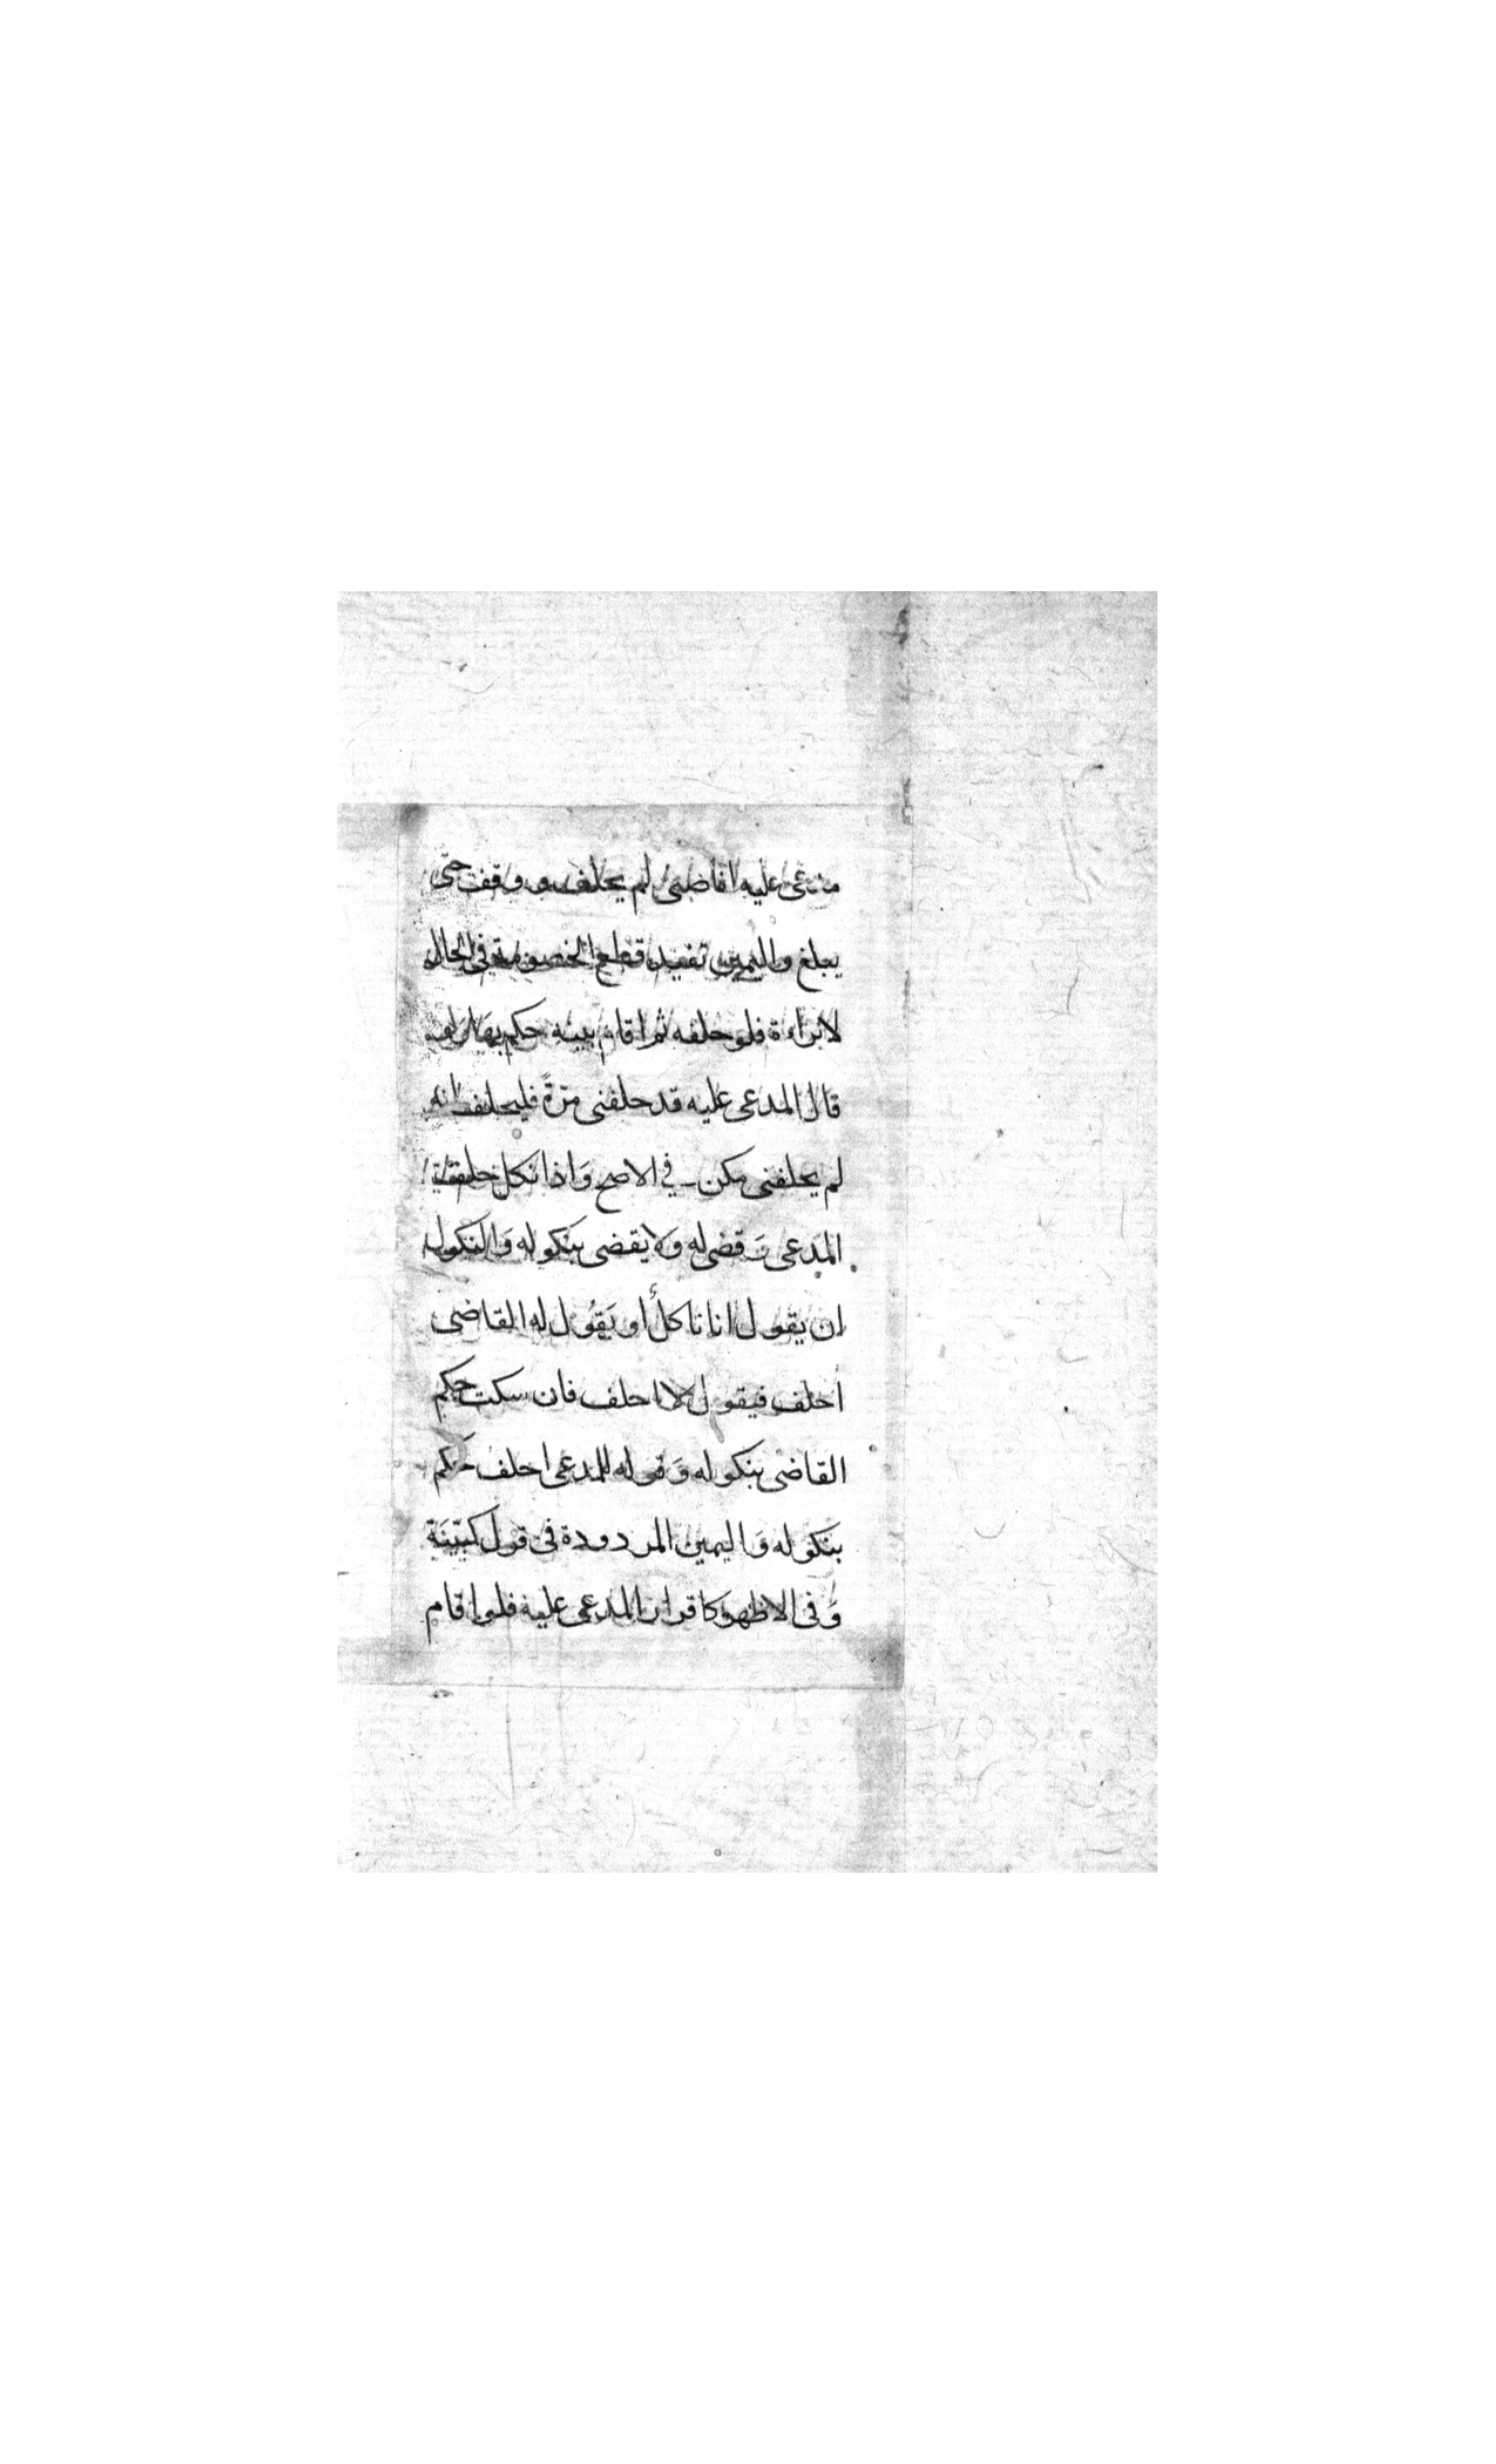 مدعى عليه انا صبى لم يحلف و وقف حتى
يبلغ واليمين تفيد قطع الخصومة فى الحال
لا براءة فلو حلفه ثم اقام بينه حكم بها ولو
قال المدعى عليه قد حلفنى مرّةً فليحلف انه
لم يحلفنى مكن فى الاصح وَاذا نكل حلف
المدعى وَقضى له وَلا يقضى بنكوله وَالنكول
ان يقول انا ناكلٌ أو يَقُول له القاضى
احلف فيقول لا احلف فان سكت حكم
القاضى بنكوله وَقوله للمدعى احلف حَكم
بنكوله وَاليمين المردودة فى قول كبيّنَة
وَفى الاظهر كاقرار المدعى عليه فلو اقام